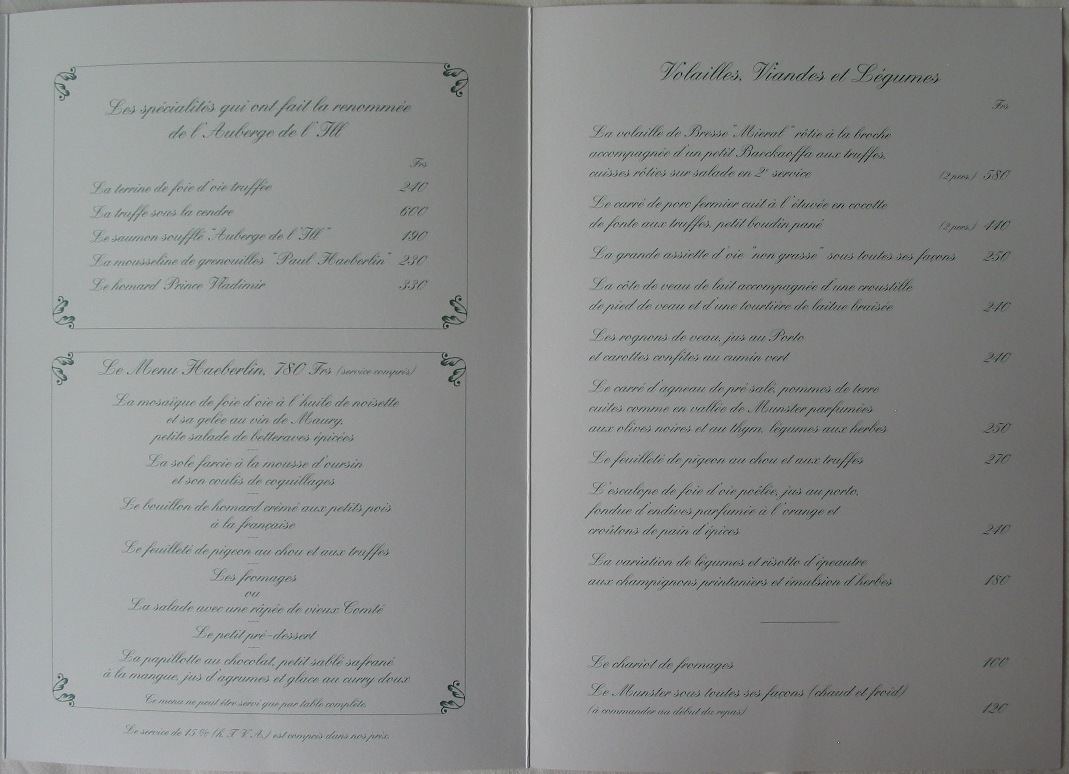 Les spécialités qui ont fait la renommée
de l'Auberge de l'Ill
Frs
La terrine de foie d'oie truffée 240
La truffe sous la cendre 600
Le saumon soufflé "Auberge de l'Ill" 190
La mousseline de grenouilles "Paul Haeberlin" 230
Le homard Prince Vladimir 330
Le Menu Haeberlin, 780 Frs (service compris)
La mosaïque de foie d'oie à l'huile de noisette
et sa gelée au vin de Maury,
petite salade de betteraves épicées
La sole farcie à la mousse d'oursin
et son coulis de coquillages
Le bouillon de homard crémé aux petits pois
à la française
Le feuilleté de pigeon au chou et aux truffes
Les fromages
ou
La salade avec une râpée de vieux Comté
Le petit pré-dessert
La papillotte au chocolat, petit sablé safrané
à la mangue, jus d'agrumes et glace au curry doux
Ce menu ne peut être servi que par table complète.
Le service de 15 % (h.T.V.A.) est compris dans nos prix.
Volailles, Viandes et Légumes
Frs
La volaille de Bresse "Mieral" rôtie à la broche
accompagnée d'un petit Baeckaoffa aux truffes,
cuisses rôties sur salade en 2e service (2 pers.) 580
Le carré de porc fermier cuit à l'étuvée en cocotte
de fonte aux truffes, petit boudin pané (2 pers.) 440
La grande assiette d'oie "non grasse" sous toutes ses façons 250
La côte de veau de lait accompagnée d'une croustille
de pied de veau et d'une tourtière de laitue braisée 240
Les rognons de veau, jus au Porto
et carottes confites au cumin vert 240
Le carré d'agneau de pré salé, pommes de terre
cuites comme en vallée de Munster parfumées
aux olives noires et au thym, légumes aux herbes 250
Le feuilleté de pigeon au chou et aux truffes 270
L'escalope de foie d'oie poêlée, jus au porto,
fondue d'endives parfumée à l'orange et
croûtons de pain d'épices 240
La variation de légumes et risotto d'épeautre
aux champignons printaniers et émulsion d'herbes 180
Le chariot de fromages 100
Le Munster sous toutes ses façons (chaud et froid)
(à commander au début du repas) 120